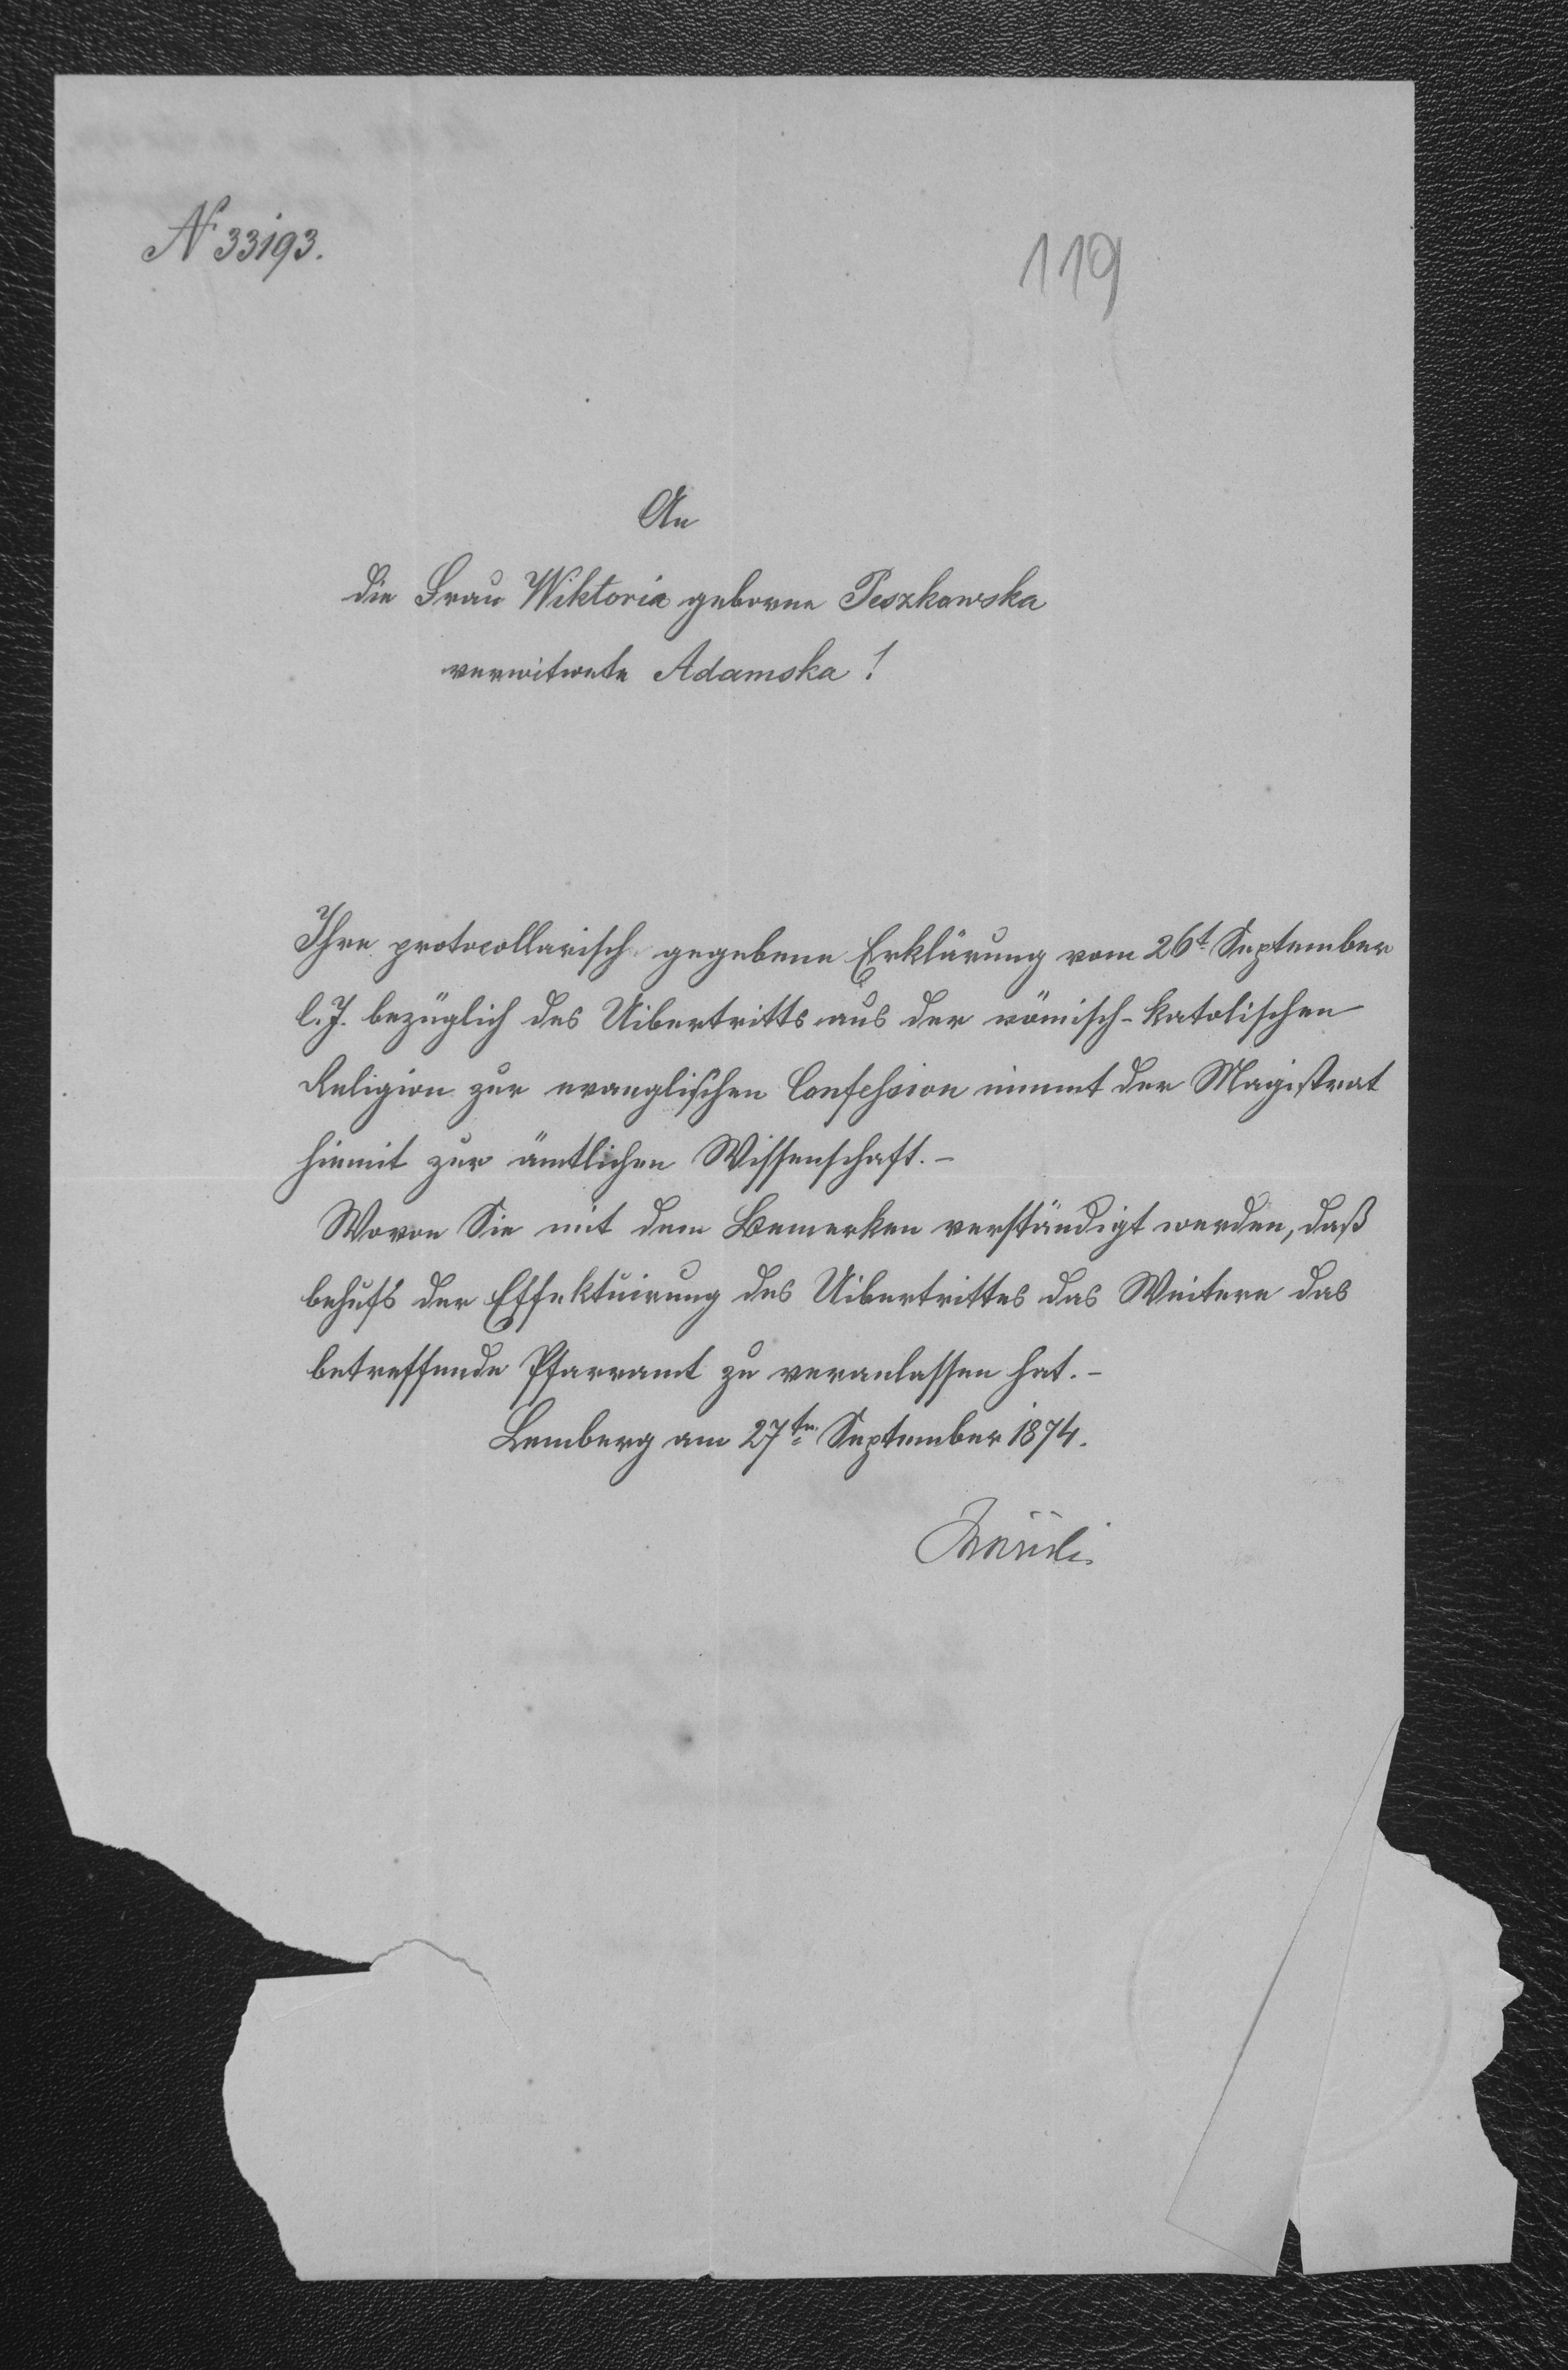 N 33193.
119
An
die Frau Wiktoria geborne Peszkowska
verwitwete Adamska!
Ihre protocollarisch gegebene Erklärung vom 26t September
l. J. bezüglich des Uibertritts aus der römisch-katolischen
Religion zur evanglischen Confession nimmt der Magistrat
hiemit zur ämtlichen Wissenschaft.-
Wovon Sie mit dem Bemerken verständigt werden, daß
behufs der Effektuirung des Uibertrittes das Weitere das
betreffende Pfarramt zu veranlassen hat.-
Lemberg am 27ten September 1874.